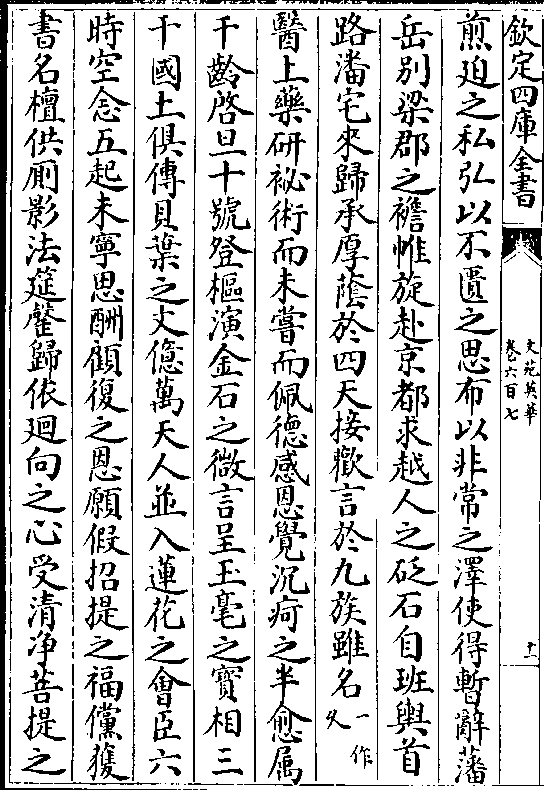 欽定四庫全書
文苑英華
卷六百七
十一
煎廹之私弘以不匱之思布以非常之澤使得暫辭藩
岳别梁郡之襜帷旋赴京都求越人之砭石自班輿首
路潘宅來歸承厚蔭於四天接歡言於九族雖名一作乆
醫上藥研祕術而未嘗而佩德感恩覺沉疴之半愈属
千齡啓旦十號登樞演金石之微言呈玉毫之寳相三
千國土俱傳貝葉之文億萬天人並入蓮花之會臣六
時空念五起未寧思酬顧復之恩願假招提之福儻獲
書名檀供厠影法筵罄歸依廻向之心受清净菩提之